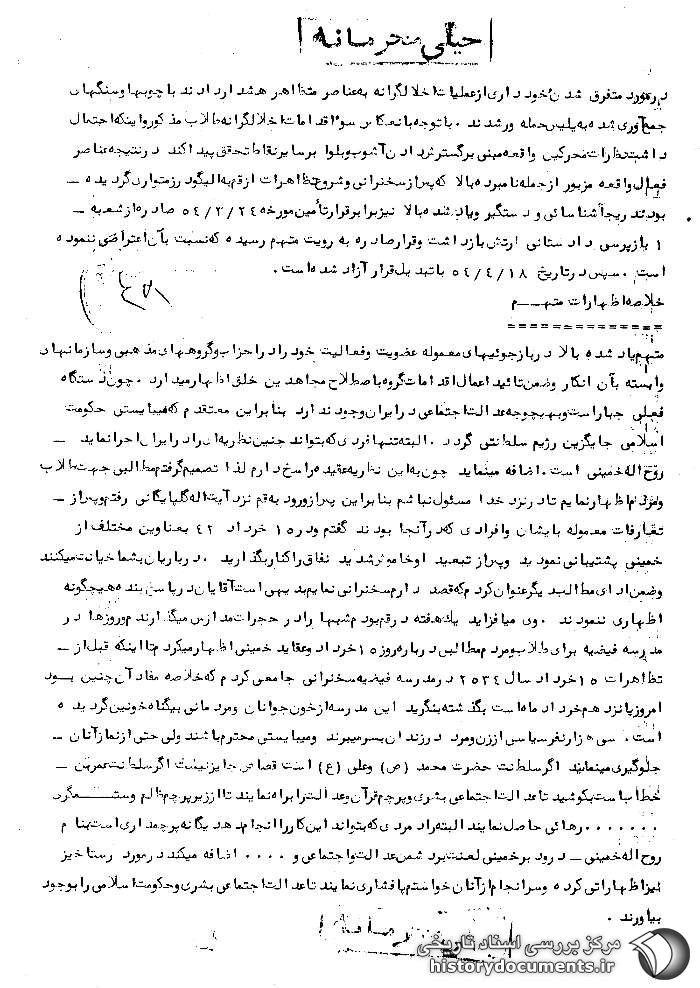 خیلی محرمانه
درمورد متفرق شدن و خودداری از عملیات اخلالگرانه به عناصر متظاهر هشدار دادند با چوبها و سنگهای
جمع‌آوری شده به پلیس حمله ور شدند . با توجه به انعکاس سوء اقدامات اخلالگرانه طلاب مذکور و اینکه احتمال
داشت نظرات محرکین واقعه مبنی بر گسترش دادن آشوب و بلوا بر سایر نقاط تحقق پیدا کند درنتیجه عناصر
فعال واقعه مزبور از جمله نامبرده بالا که پس از سخنرانی و شروع تظاهرات از قم به الیگودرز متواری گردیده -
بودند ریجاً شناسائی و دستگیر و یاد شده بالا نیز برابر قرار تأمین مورخه ۵۴/۳/۲۴ صادره از شعبه -
۱ بازپرسی دادستانی ارتش بازداشت و قرار صادره به رویت متهم رسیده که نسبت بآن اعتراضی ننموده
است . سپس در تاریخ ۵۴/۴/۱۸ با تبدیل قرار آزاد شده است .
خلاصه اظهارات متهم
متهم یاد شده بالا در بازجوئیهای معموله عضویت و فعالیت خود را در احزاب و گروههای مذهبی و سازمانهای
وابسته بآن انکار و ضمن تائید اعمال اقدامات گروه باصطلاح مجاهدین خلق اظهار میدارد . چون دستگاه
فعلی جبار است و بهیچوجه عدالت اجتماعی در ایران وجود ندارد بنابراین معتقدم که میبایستی حکومت
اسلامی جایگزین رژیم سلطنتی گردد . البته تنها فردی که بتواند چنین نظریه ای را در ایران اجرا نماید -
روح اله خمینی است . اضافه مینماید چون به این نظریه عقیده راسخ دارم لذا تصمیم گرفتم مطالبی جهت طلاب
و مردم اظهار نمایم تا در نزد خدا مسئول نباشم بنابراین پس از ورود به قم نزد آیت اله گلپایگانی رفتم و پس از -
تعارفات معموله بایشان و افرادی که در آنجا بودند گفتم در ۱۵ خرداد ۴۲ بعناوین مختلف از
خمینی پشتیبانی نمودید و پس از تبعید او خاموش شدید نفاق را کنار بگذارید . درباریان بشما خیانت میکنند
وضمن ادای مطالب دیگر عنوان کردم که قصد دارم سخنرانی نمایم بدیهی است آقایان در پاسخ بنده هیچگونه
اظهاری ننمودند . وی میافزاید یک هفته در قم بودم شبها را در حجرات مدارس میگذارندم و روزها در
مدرسه فیضیه برای طلاب و مردم مطالبی درباره روز ۱۵ خرداد و عقاید خمینی اظهار میکردم تا اینکه قبل از -
تظاهرات ۱۵ خرداد سال ۲۵۳۴ در مدرسه فیضیه سخنرانی جامعی کردم که خلاصه مفاد آن چنین بود
امروز پانزدهم خرداد ماه است بگذشته بنگرید این مدرسه از خون جوانان و مردمانی بیگناه خونین گردیده
است . سی هزار نفر سیاسی از زن و مرد در زندان بسر میبرند و میبایستی محترم باشند ولی حتی از نماز آنان -
جلوگیری مینمایند اگر سلطنت حضرت محمد (ص) وعلی (ع) است قصاص جایز نیست اگر سلطنت عمربن -
خطاب است بکوشید تا عدالت اجتماعی بشری و پرچم قرآن و عدالت را براه نمایند تا از زیر پرچم ظالم و ستمگر
....... رهائی حاصل نمایند البته راد مردی که بتواند این کار را انجام دهد یگانه پرچمداری است بنام
روح اله خمینی - درود بر خمینی لعنت بر دشمن عدالت و اجتماعی و .... اضافه میکند در مورد رستاخیز
نیز اظهاراتی کرده و سرانجام از آنان خواستم پافشاری نمایند تا عدالت اجتماعی بشری و حکومت اسلامی را بوجود
بیاورند .
مرکز بررسی اسناد تاریخی
historydocuments.ir